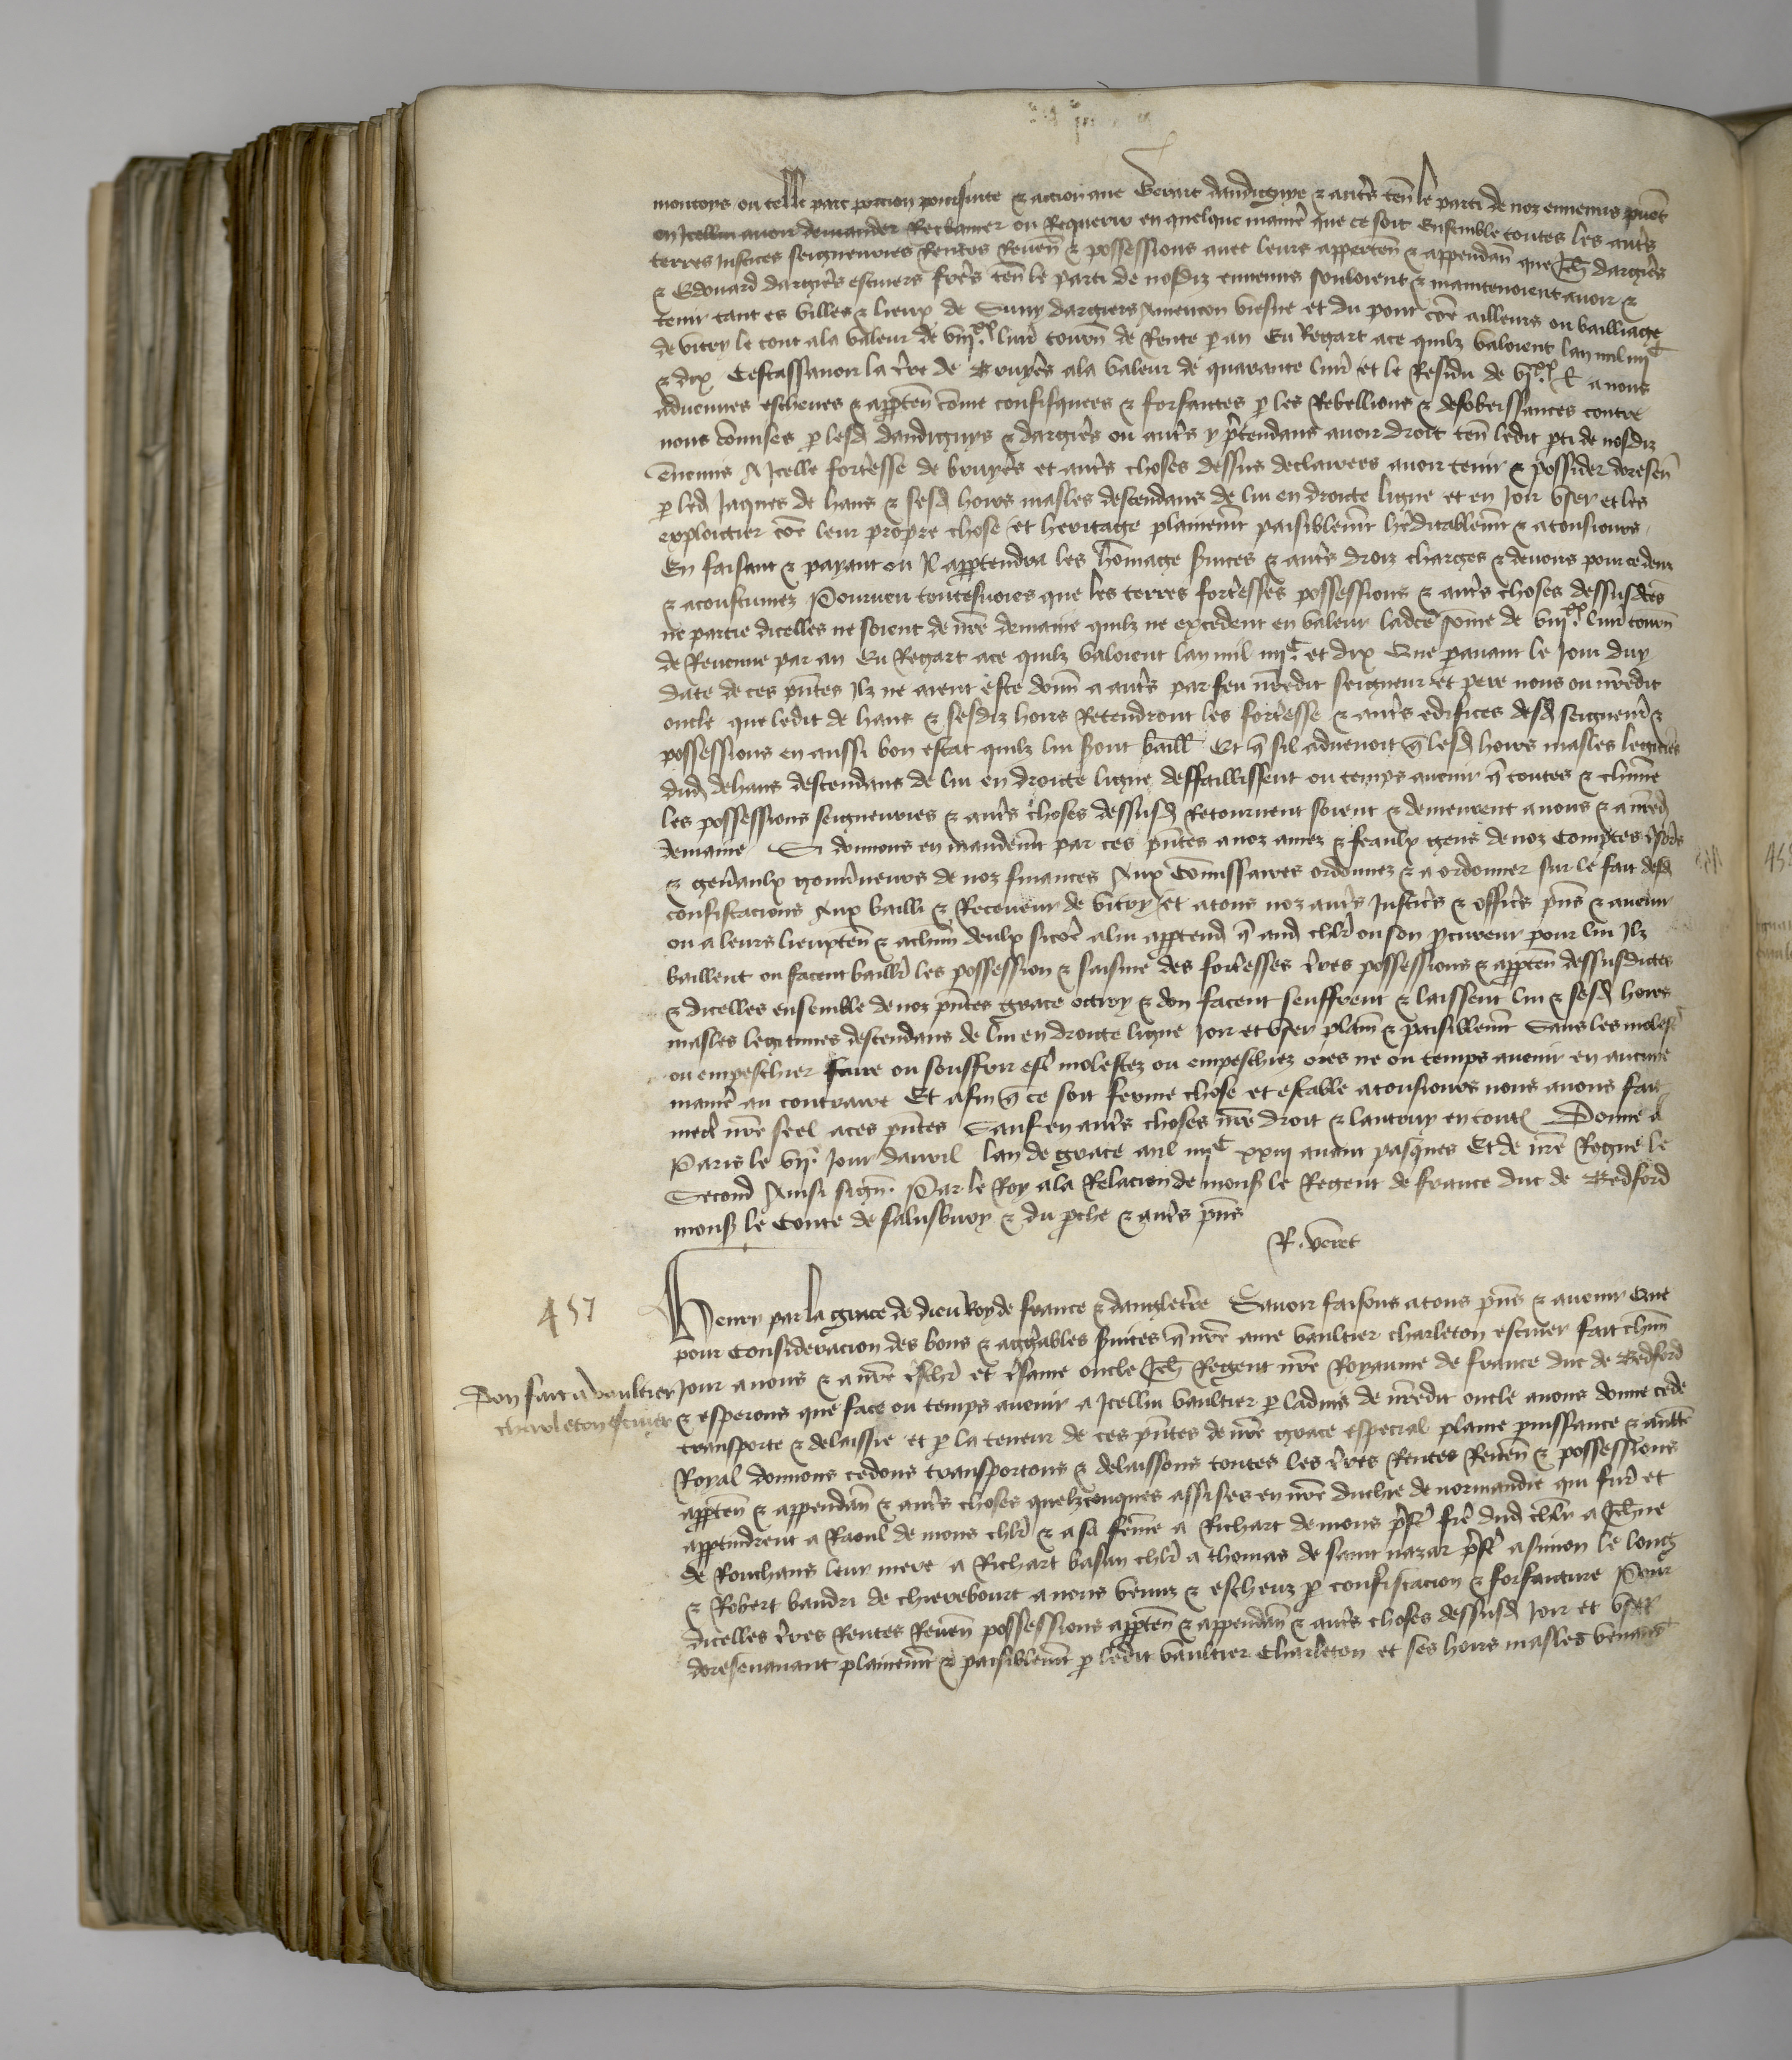 moutons ou telle part porcion poursuite & action que Gerart dandignye & autrs ten le parti de noz ennemis puet
en Icellui avoir demander Reclamer ou Requerir en quelque manie que ce soit Ensemble toutes les autrs
terres Justices seigneuries Rentes Reven & possessions avec leurs apparten & appendan que Jeh dargiers
& Edouard dargiers escuiers freres ten le parti de nosdiz ennemis souloient & maintenoient avoir &
tenir tant es villes & lieux de Suny dargiers viesne et du pont coe ailleurs ou bailliage
de vitry le tout ala valeur de viijxx livr tourn de Rente p an Eu Regart ace quilz valoient lan mil iiijc
& dix Cestassavoir la tre de Bruyeres ala valeur de quarante livr et le Residu de vjxx l a nous
advenues escheues & apparten come confisquees & forfaites p les Rebellions & desobeissances contre
nous comises p lesd dandignys & dargiers ou autrs y ptendans avoir droit ten ledit pti de nosdiz
Ennemis A Icelle forteresse de bruyeres et autrs choses dessus declairees avoir tenir & possider doresen
p led Jaques de hans & sesd hoirs masles descendans de lui en droite ligne et en Joir user et les
exploictier coe leur propre chose et heritage plainemt paisiblemt heditablemt & atousiours
En faisant & payant ou Il appartendra les homage svices & autrs droiz charges & devoirs pour ce deuz
& acoustumez Pourveu toutesvoies que les terres forteresses possessions & autrs choses dessusdces
ne partie dicelles ne soient de nre demaine quilz ne excedent en valeur ladce some de viijxx livr tourn
de Revenue par an Eu Regart ace quilz valoient lan mil iiijc et dix Que pavant le Jour duy
date de ces pntes Ilz ne aient este donn a autrs par feu nredit seigneur et pere nous ou nredit
oncle que ledit de hans & sesdiz hoirs Retendront les forteresse & autrs edifices desd seigneur &
possessions en aussi bon estat quilz lui sont baill Et q sil advenoit q lesd hoirs masles legities
dud dehans descendans de lui en droicte ligne deffaillissent ou temps avenir q toutes & chune
les possessions seigneuries & autrs choses dessusd Retournent soient & demeurent a nous & a nred
demaine Si donnons en mandemt par ces pntes a noz amez & feaulx gens de noz Comptes tsors
& genaulx gouvneurs de noz finances Aux Comissaires ordonnez & a ordonner sur le fait desd
confiscacions Aux bailli & Receveur de vitry et atous noz autrs Justics & offics pns & avenir
ou a leurs lieuxten & achun deulx sicoe alui apptend q aud chlr ou son pcureur pour lui Ilz
baillent ou facent baillr les possession & saisine des forteresses tres possessions & apparten dessusdictes
& dicelles ensemble de noz pntes grace ottroy & don facent seuffrent & laissent lui & sesd hoirs
masles legitimes descendans de lui en droicte ligne Joir et user plain & paisiblemt Sans les molest
ou empeschier faire ou souffrir est molestez ou empeschiez ores ne ou temps avenir en aucune
manie au contraire Et afin q ce soit ferme chose et estable atousiours nous avons fait
mect nre seel aces pntes Sauf en autrs choses nre droit & lautruy en toutes Donne a
Paris le vije Jour davril lan de grace mil iiijc xxiij avant pasques Et de nre Regne le
Second Ainsi sign Par le Roy ala Relacion de mons le Regent de france duc de Bedford
mons le Conte de salusbury & du pche & autrs pns
R. veret
457
Henry par la grace de dieu Roy de france & dangleterre Savoir faisons atous pns & avenir Que
pour Consideracion des bons & aggreables svices q nre ame vaultier charleton escuier fait chun
Don fait a vaultier
charleton escuier
Jour a nous & a nre tschr et tsame oncle Jeh Regent nre Royaume de france duc de Bedford
& esperons que face ou temps avenir a Icellui vaultier p ladvis de nredit oncle avons donne cede
transporte & delaissie et p la teneur de ces pntes de nre grace especial plaine puissance & auctte
Royal donnons cedons transportons & delaissons toutes les tres Rentes Reven & possessions
apparten & appendan & autrs choses quelzconques assises en nre duchie de normandie qui furt et
appartindrent a Raoul de mons chlr & a sa feme a Richart de mons pbre fre dud chlr a Jehne
de Rouchans leur mere a Richart basan chlr a thomas de saint nazar pbre a simon le long
& Robert baudri de chierebourt a nous venuz & escheuz p confiscacion & forfaiture Pour
dicelles tres Rentes Reven possessions apparten & appendan & autrs choses dessusd Joir et user
doresenavant plainemt & paisiblemt p ledit vaultier Charleton et ses hoirs masles venans